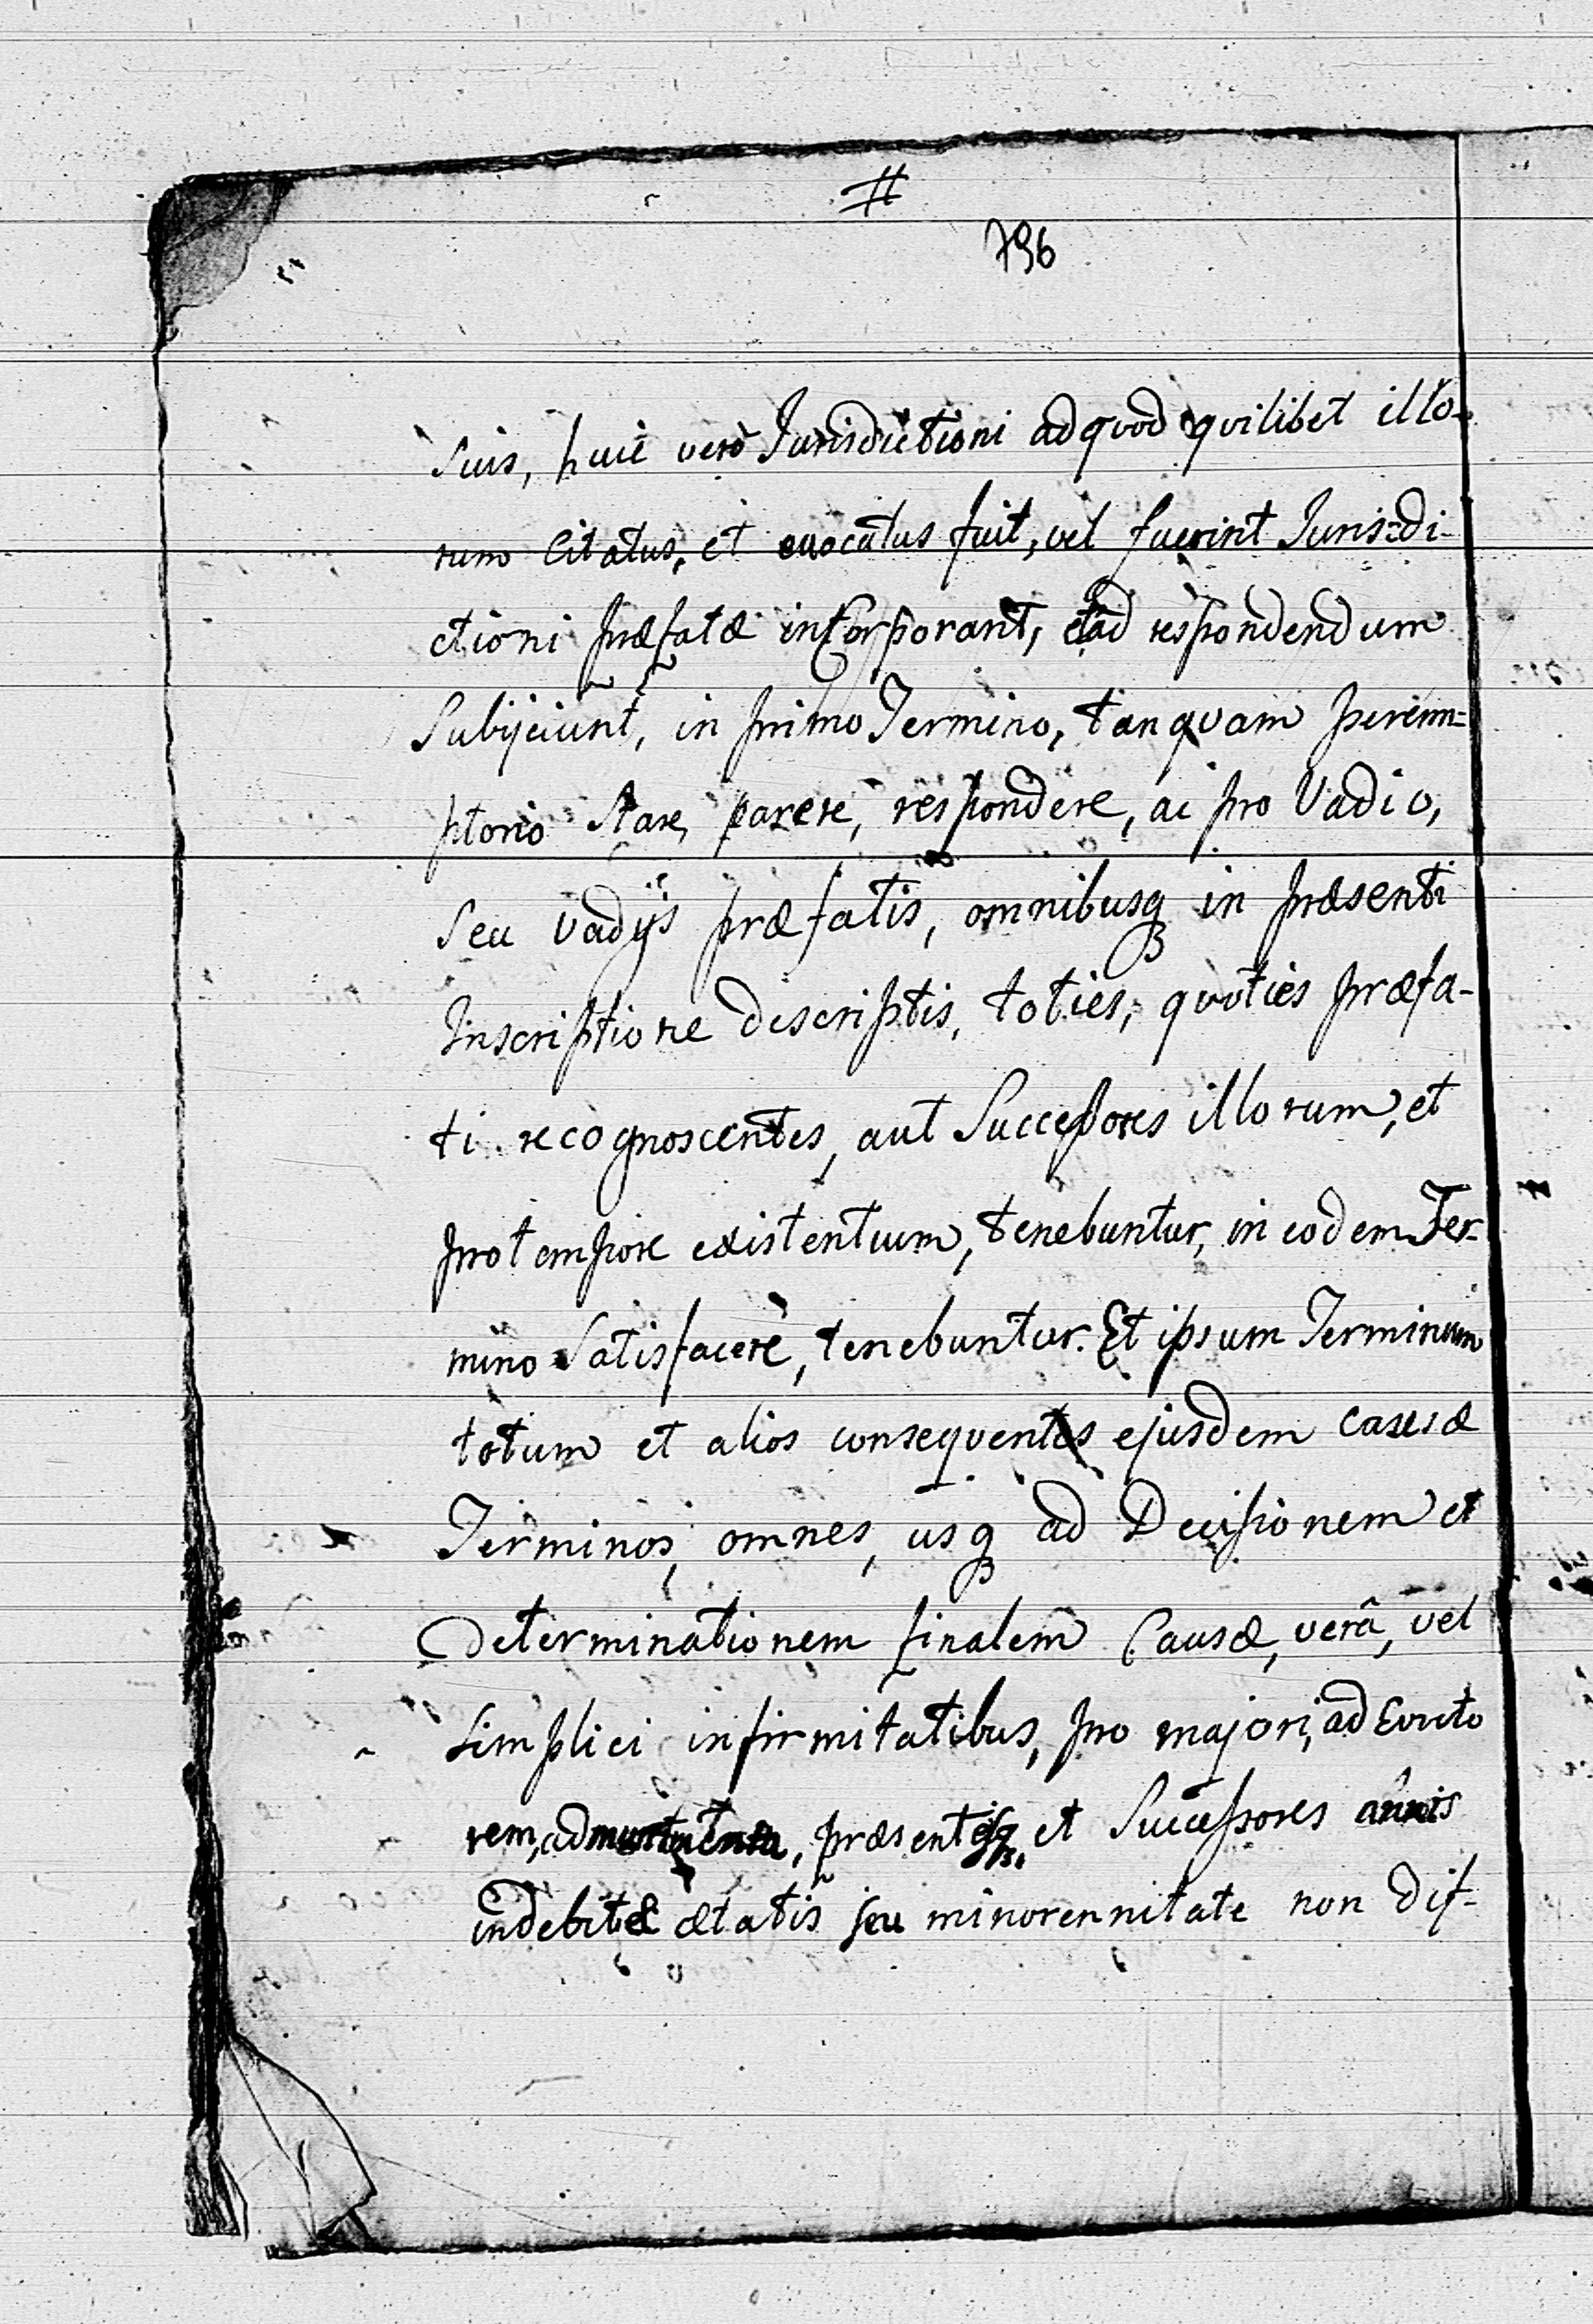 #
796
suis, huic verò Jurisdictioni ad quod quilibet illo-
rum Citatus, et evocatus fuit, vel fuerint Juris=di-
ctioni præfatæ incorporant, et ad respondendum
Subijciunt, in primo Termino, tanquam perem=
ptorio stare, parere, respondere, ac pro Vadio,
seu vadijs præfatis, omnibusq in præsenti
Inscriptione descriptis, toties, quoties præfa-
ti recognoscentes, aut Successores illorum, et
pro tempore existentium, tenebuntur, in eodem Ter-
mino Satisfacere, tenebuntur. Et ipsum Terminum
totum et alios consequentes ejusdem causæ
Terminos, omnes, usq ad Decisionem et
Determinationem finalem Causæ, verâ, vel
simplici infirmitatibus, pro majori, ad Evicto
rem, ad munimenta, præsentesq, et Successores annis
indebitæ ætatis seu minorennitate non dif-